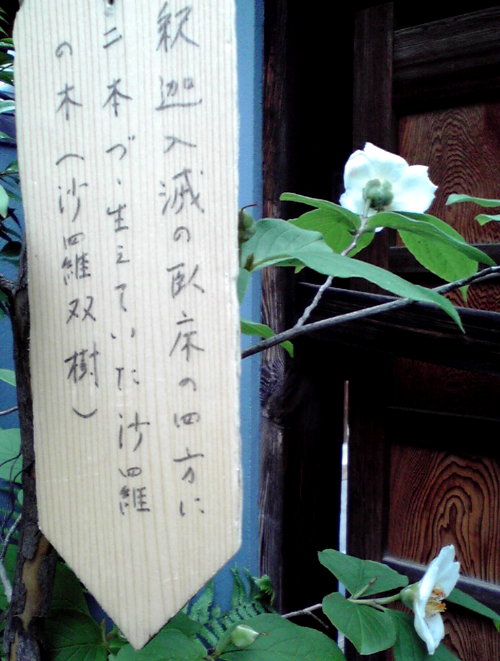 釈迦入滅の臥床の四方に
二本づゝ生えていた沙羅
の木(沙羅双樹)